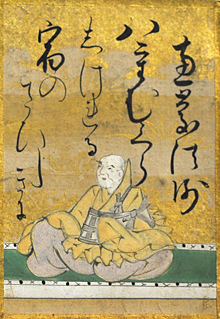 恵慶法師
八重むくら
しけれる
宿の
さひし
きに